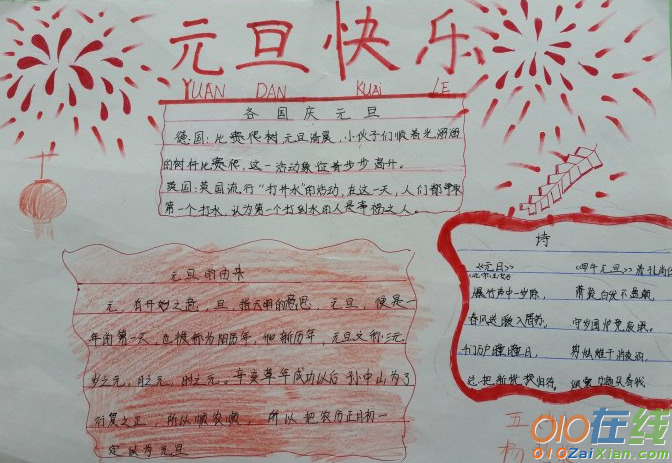 元旦快乐
YUAN DAN KUAi LE
各国庆元旦
德国:比赛爬树元旦活展,小伙子们顺着光溜溜
的树杆比赛爬,这一活动象征着步步高升。
英国:英国流行“打井水”的活动,在这一天,人们都争取
第一个打水,认为第一个打到水的人是幸福之人。
元旦的由来
元,有开始之意,旦,指天明的意思,元旦,便是一
年的第一天,也被称为阳历年,
新历年,元旦又称:三元,
岁之元,月之元,时之元。辛亥革命成功以后孙中山为了
行夏之正,所以顺农,所以把农历正月初一
定
为元旦
诗
《元日》
爆竹声中一岁除,
春风送暖入屠苏,
千门万户瞳瞳日,
总把新桃换旧符。
《四午元旦》
萧疏白发不盈颠,
守岁围炉竟废眠,
剪烛
五
杨
010在线
010ZaiXian.com